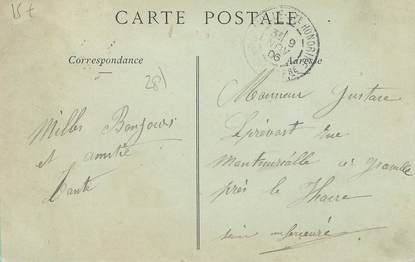 15 f
CARTE POSTALE
Correspondance
Adresse
28
9
06
Milles Bonjours
et amitié
Monsieur Gustave
Leprévost rue
à Graville
près le Havre
Seine inférieure